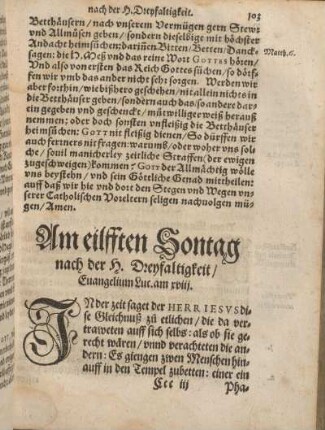 nach der H. Dreyfaltigkeit. 103
Betthäusern / nach vnserem Vermügen gern Stewr
vnd Allmüsen geben / sondern dieselbige mit höchster
Andacht heimsüchen: darinen Bitten / Betten / Danck-
sagen: die H. Meß vnd das reine Wort GOTTES hören /
Vnd also von ersten das Reich Gottes süchen / so dörf-
fen wir vmb das ander nicht sehr sorgen. Werden wir
aber forthin / wie bißhero geschehen / nit allein nichts in
die Betthäuser geben / sondern auch das / so andere dar-
ein gegeben vnd geschenckt / mütwilliger weiß herauß
nemmen: oder doch sonsten vnfleißig die Betthäuser
heimsüchen: GOTT nit fleißig dienen / So dürffen wir
auch ferrners nit fragen: warumb / oder woher vns sol-
che / souil manicherley zeitliche Straffen (der ewigen
zugeschweigen) kommen: GOTT der Allmächtig wölle
vns beystehn / vnd sein Göttliche Genad mittheilen:
auff daß wir hie vnd dort den Stegen vnd Wegen vn-
serer Catholischen Voreltern seligen nachuolgen mü-
gen / Amen.
Matth. 6.
Am eilfften Sontag
nach der H. Dreyfaltigkeit /
Euangelium Luc. am xviij.
INder zeit saget der HERR IESVS di-
se Gleichnuß zu etlichen / die da ver-
traweten auff sich selbs: als ob sie ge-
recht wären / vnnd verachteten die an-
dern: Es giengen zwen Menschen hin-
auff in den Tempel zubetten: einer ein
Ccc iij Pha-